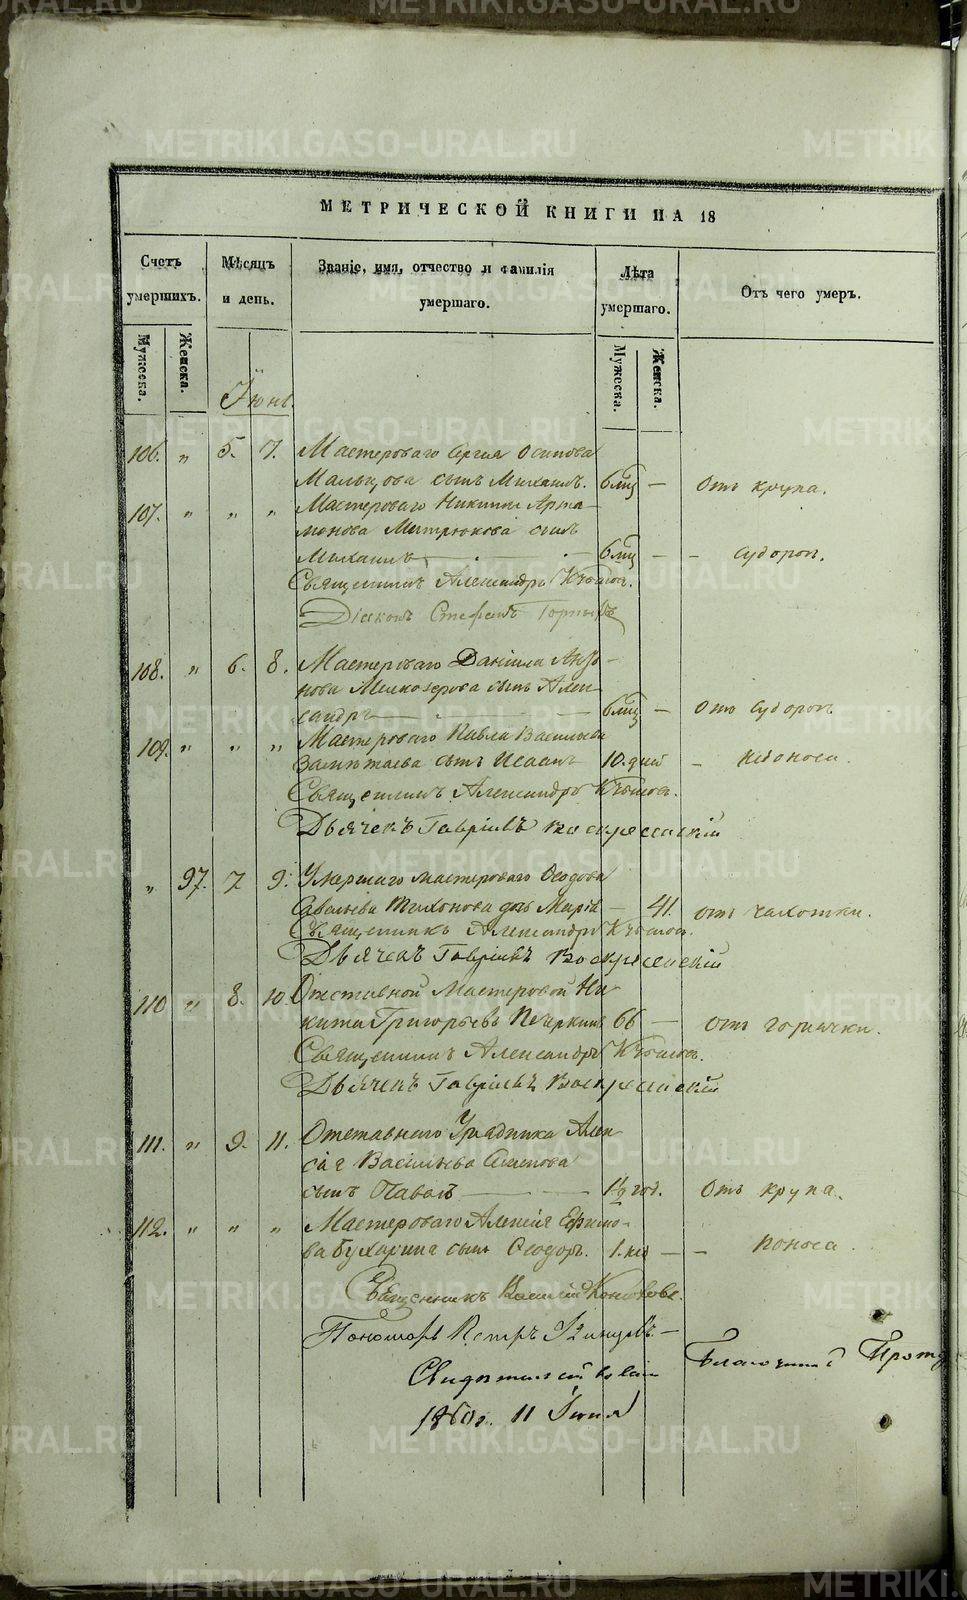 МЕТРИЧЕСКОЙ КНИГИ НА 18
Счетъ умершихъ.
Мѣсяцъ и день.
Званіе, имя, отчество и фамилія умершаго.
Лѣта умершаго.
Отъ чего умеръ.
Мужеска.
Женска.
Мужеска.
Женска.
Іюнь.
106. " 5. 7. Мастероваго Сергія Осипова
Мальцова сынъ Михаилъ. 6 мц — Отъ крупа.
107. " " " Мастероваго Никиты Арта-
монова Митрюкова сынъ
Михаилъ 6 мц — - судорог.
Священникъ Александръ
Діаконъ Стефанъ
108. " 6. 8. Мастероваго Даніила
нова сынъ Алек-
сандръ — 6 мц — Отъ судорог.
109. " " " Мастероваго Павла Васильева
сынъ Исаакъ 10. дней -
Священникъ Александръ
Дьячекъ Гавріилъ Воскресенскій
" 97. 7 9. Умершаго мастероваго Ѳеодора
Савельева Тихонова дочь Марія — 41. отъ чахотки.
Священникъ Александръ
Дьячекъ Гавріилъ Воскресенскій
110 " 8. 10. Отставной Мастеровой Ни-
кита Григорьевъ Печеркинъ 66 — Отъ горячки.
Священникъ Александръ
Дьячекъ Гавріилъ Воскресенскій
111. " 9. 11. Отставнаго Урядника Алек-
сія Васильева
сынъ Павелъ — 1½ год. Отъ крупа.
112. " " " Мастероваго Алексія Ефимо-
ва Бухарина сынъ Ѳеодоръ. 1. — - поноса.
Священникъ Василій
Пономарь Петръ
Благочинный Прото
11 Іюня
METRIKI.GASO-URAL.RU